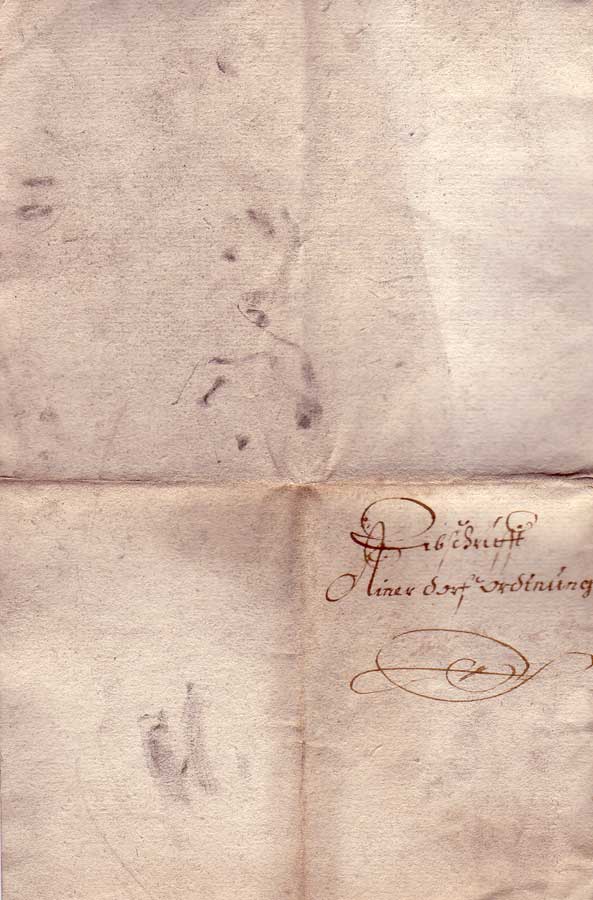 Abschrifft
Einer dorf ordtnùng